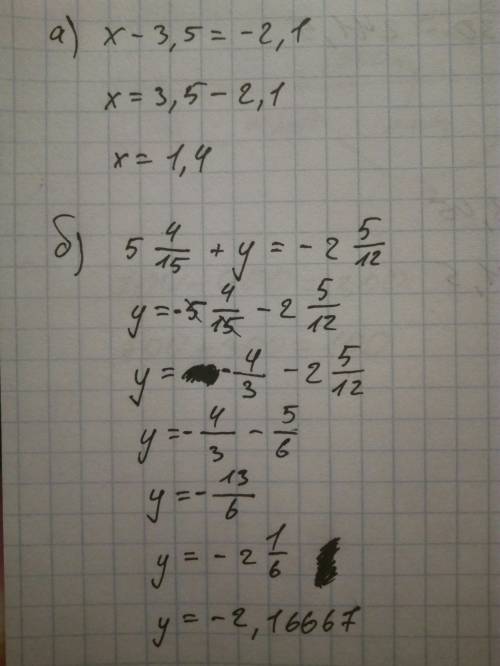 а) x - 3,5 = -2,1
x = 3,5 - 2,1
x = 1,4
б) 5 4/15 + y = - 2 5/12
y = - 5 4/15 - 2 5/12
y = - 4/3 - 2 5/12
y = - 4/3 - 5/6
y = - 13/6
y = - 2 1/6
y = -2,16667